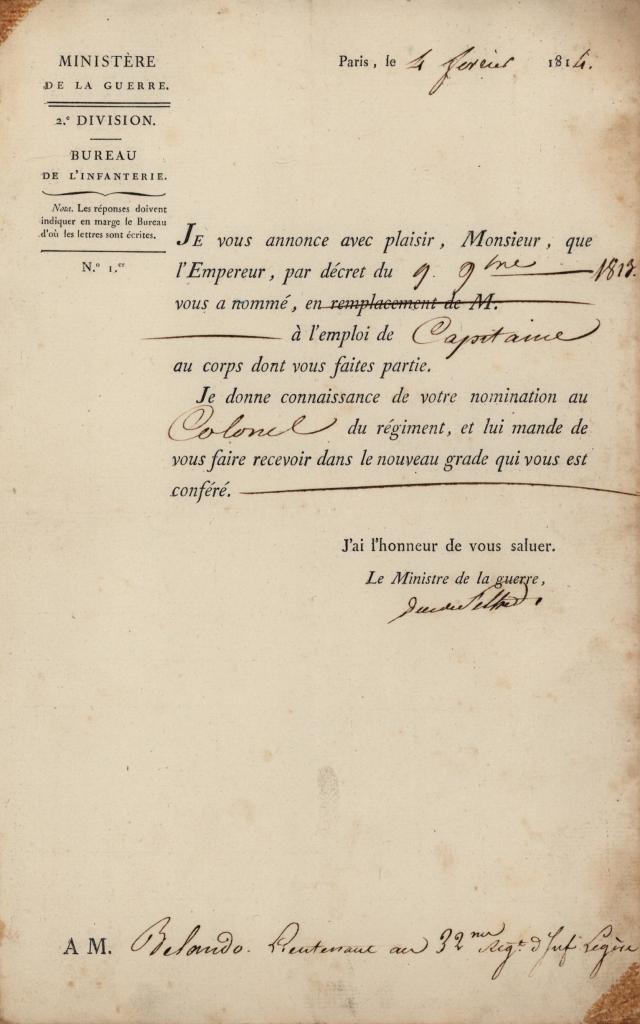 MINISTÈRE
DE LA GUERRE.
2.e DIVISION.
BUREAU
DE L'INFANTERIE.
Nota. Les réponses doivent
indiquer en marge le Bureau
d'où les lettres sont écrites.
N.o 1.er
Paris, le 4 février 1814.
JE vous annonce avec plaisir, Monsieur, que
l'Empereur, par décret du 9. 9bre 1813.
vous a nommé, en remplacement de M.
à l'emploi de Capitaine
au corps dont vous faites partie.
Je donne connaissance de votre nomination au
Colonel du régiment, et lui mande de
vous faire recevoir dans le nouveau grade qui vous est
conféré.
J'ai l'honneur de vous saluer.
Le Ministre de la guerre,
A M. Belando. Lieutenant au 32me Régt. d'Inf. Légère